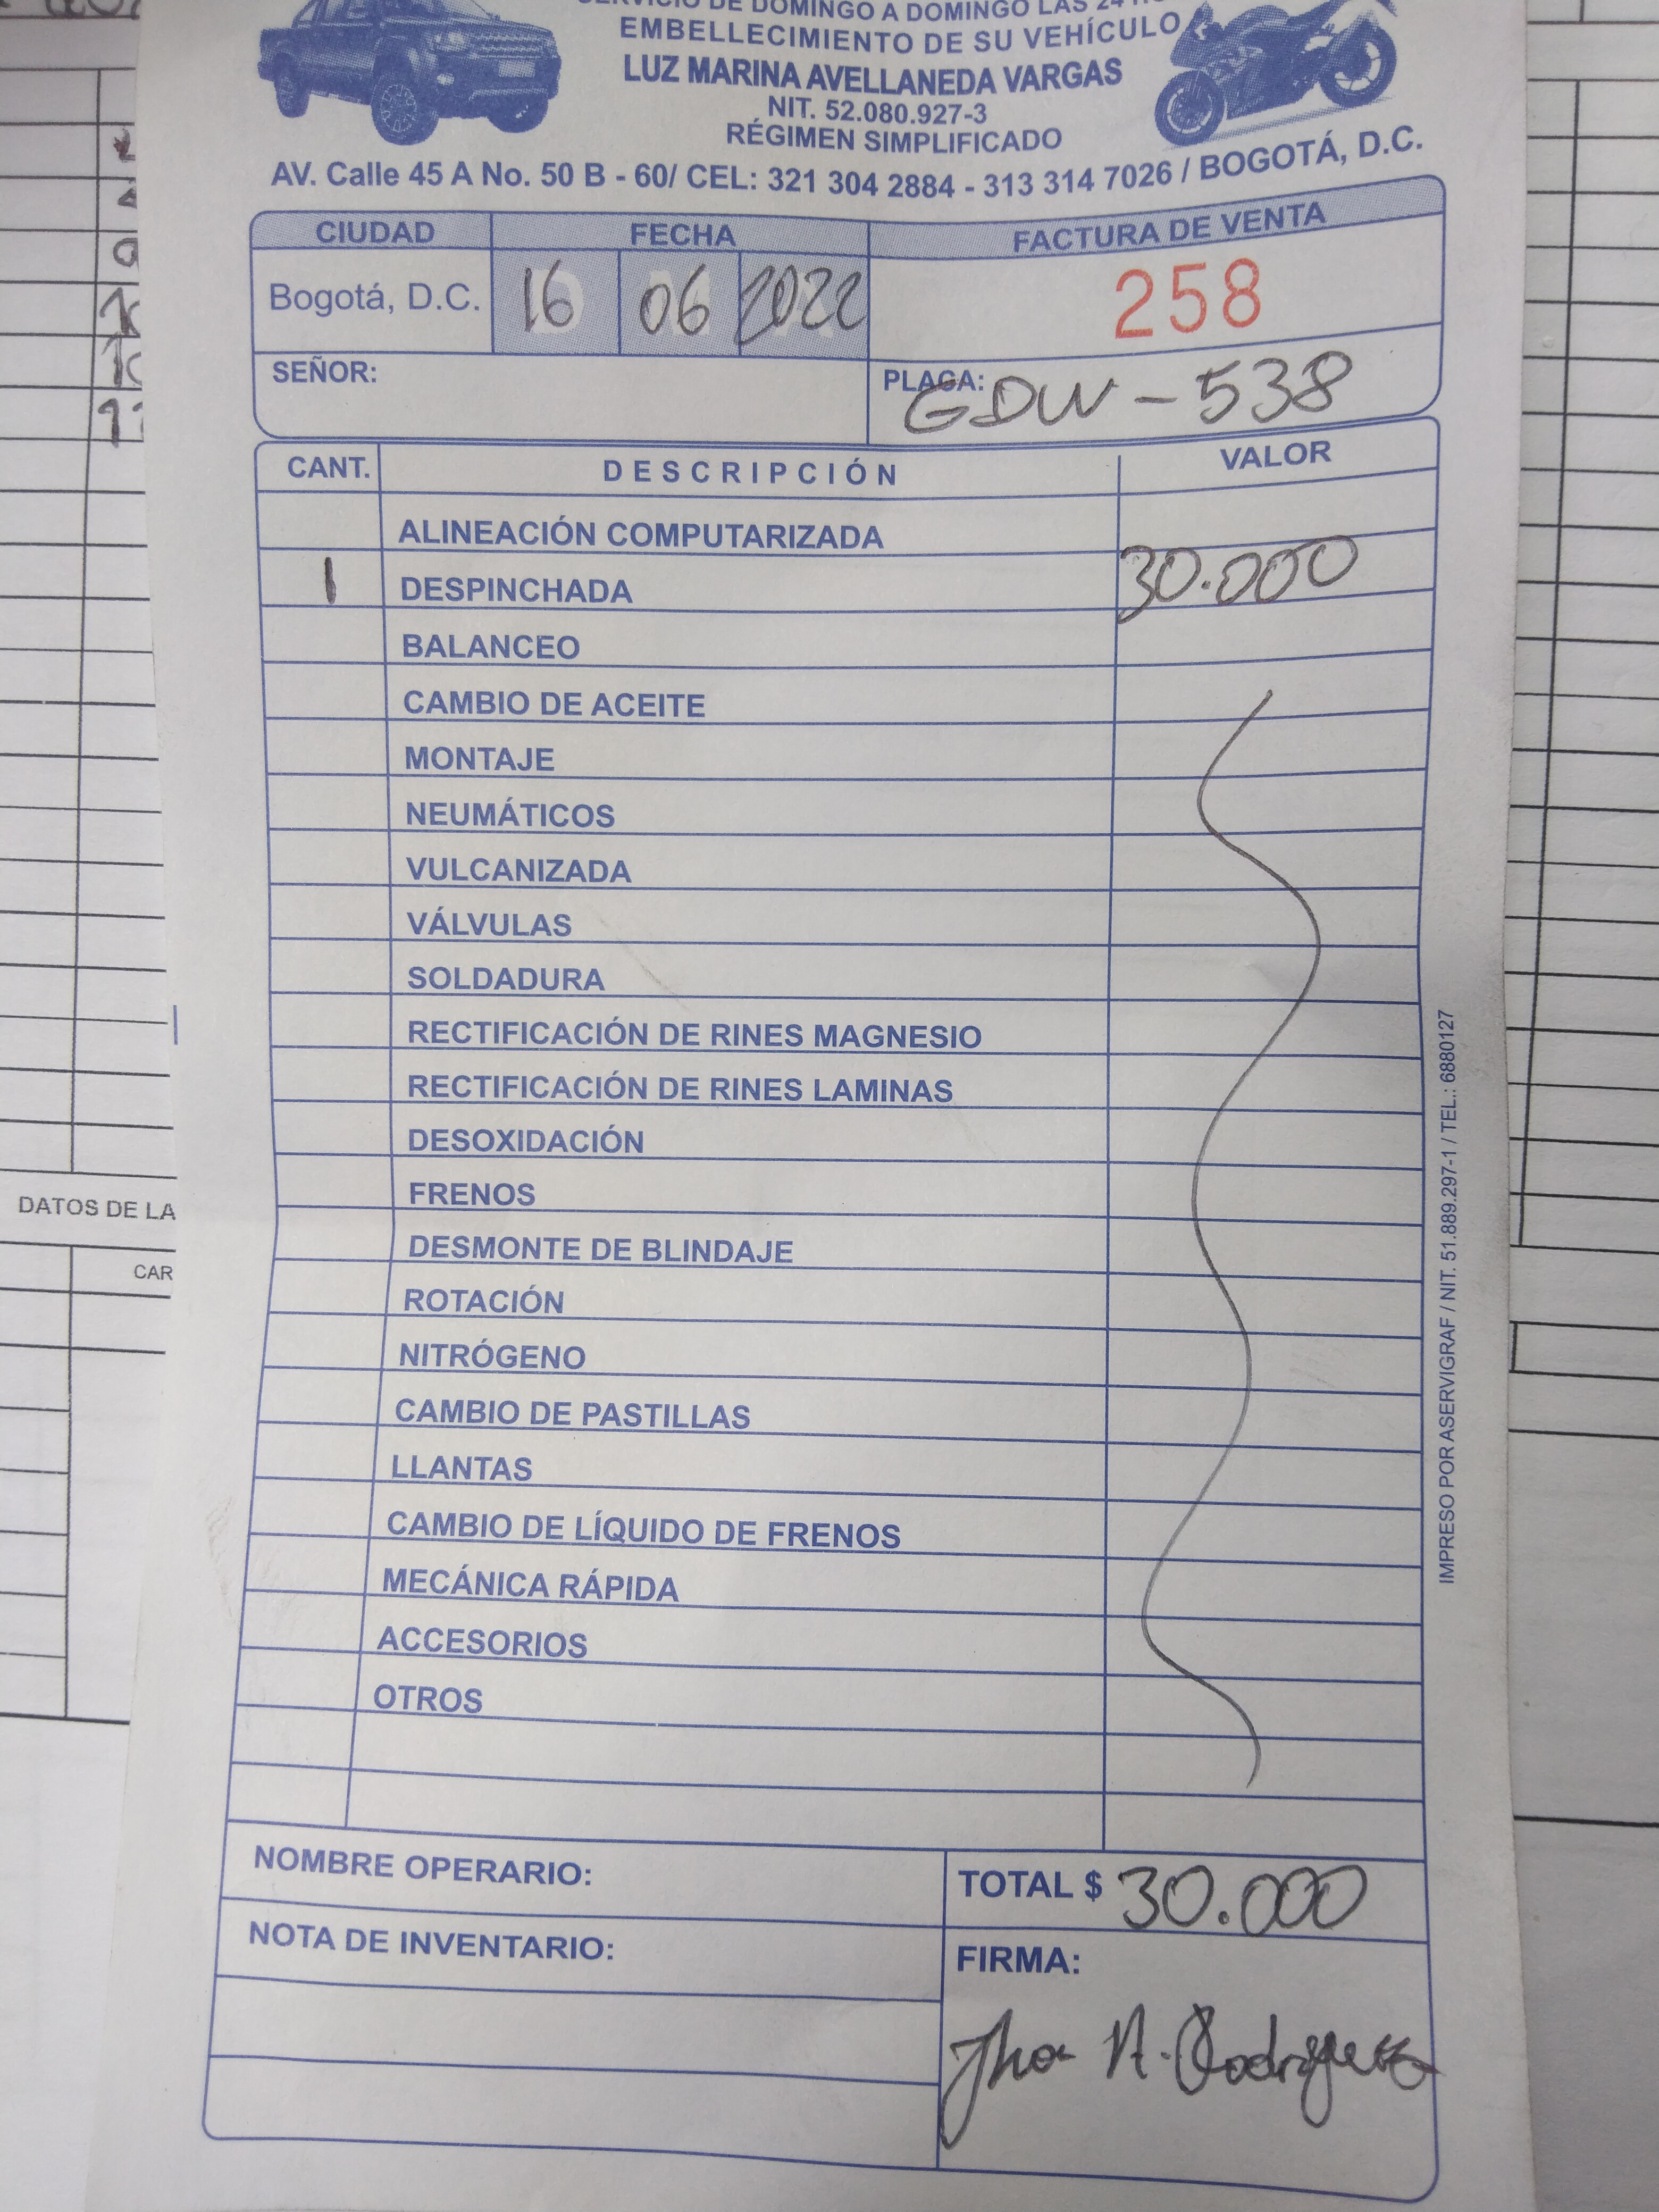 SERVICIO DE DOMINGO A DOMINGO LAS 24
EMBELLECIMIENTO DE SU VEHÍCULO
LUZ MARINA AVELLANEDA VARGAS
NIT. 52.080.927-3
RÉGIMEN SIMPLIFICADO
AV. Calle 45 A No. 50 B - 60/ CEL: 321 304 2884 - 313 314 7026 / BOGOTÁ, D.C.
CIUDAD FECHA FACTURA DE VENTA
Bogotá, D.C. 16 06 2022 258
SEÑOR: PLACA: GDW - 538
CANT. DESCRIPCIÓN VALOR
ALINEACIÓN COMPUTARIZADA
1 DESPINCHADA 30.000
BALANCEO
CAMBIO DE ACEITE
MONTAJE
NEUMÁTICOS
VULCANIZADA
VÁLVULAS
SOLDADURA
RECTIFICACIÓN DE RINES MAGNESIO
RECTIFICACIÓN DE RINES LAMINAS
DESOXIDACIÓN
FRENOS
DESMONTE DE BLINDAJE
ROTACIÓN
NITRÓGENO
CAMBIO DE PASTILLAS
LLANTAS
CAMBIO DE LÍQUIDO DE FRENOS
MECÁNICA RÁPIDA
ACCESORIOS
OTROS
NOMBRE OPERARIO: TOTAL $ 30.000
NOTA DE INVENTARIO: FIRMA:
Jhon A. Rodriguez
IMPRESO POR ASERVIGRAF / NIT. 51.889.297-1 / TEL.: 6880127
DATOS DE LA
CAR